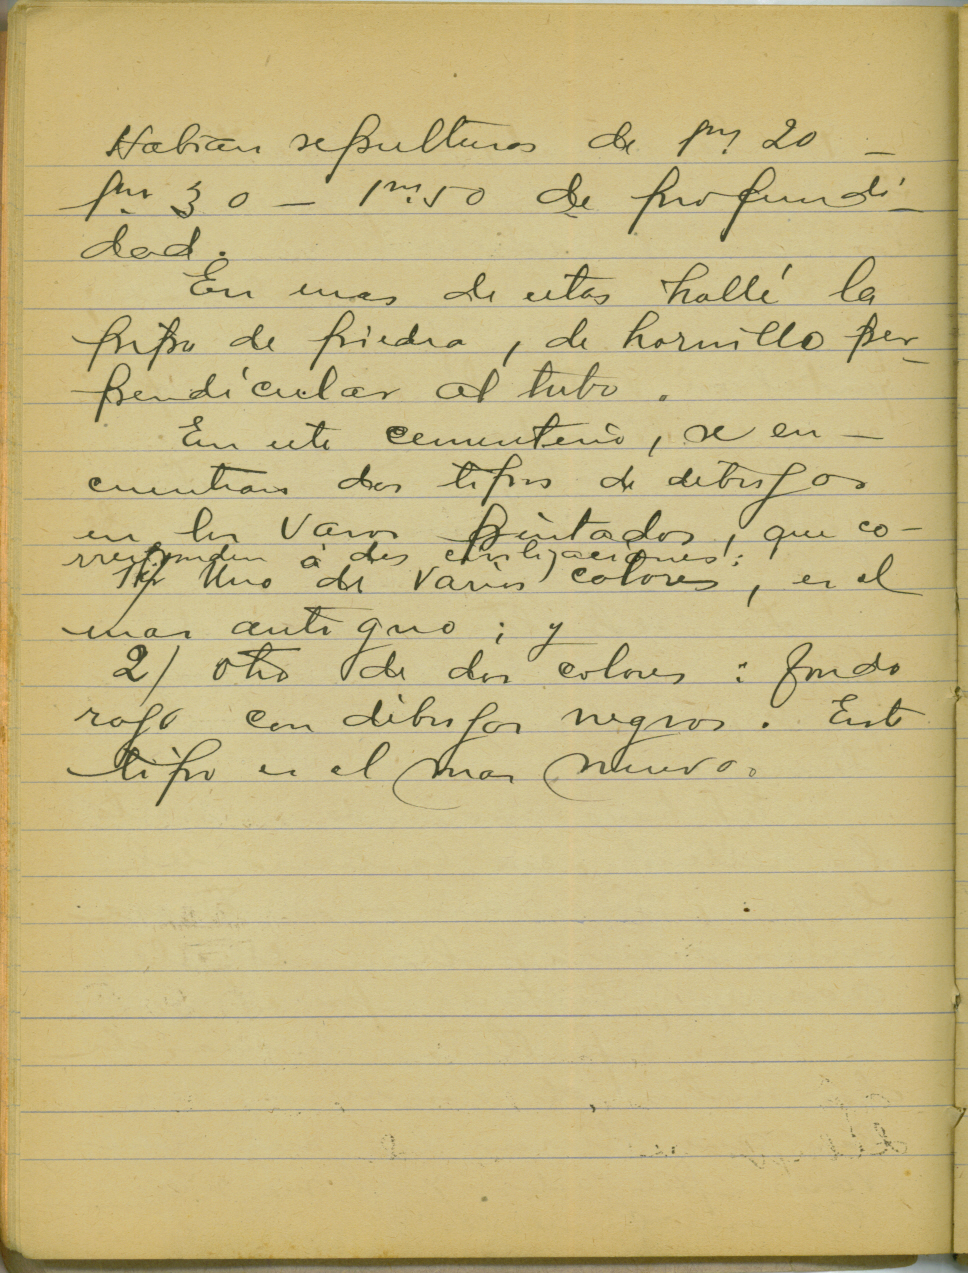 Habian sepulturas de 1m. 20 -
1m. 30 - 1m. 50 de profundi-
dad.
En una de estas hallé la
pipa de piedra, de hornillo per-
pendicular al tubo.
En este cementerio, se en-
cuentran dos tipos de dibujos
en los vasos pintados, que co-
rresponden á dos civilizaciones:
1/ Uno de varios colores, es el
mas antiguo; y
2/ otro de dos colores: fondo
rojo con dibujos negros. Este
tipo es el mas nuevo.